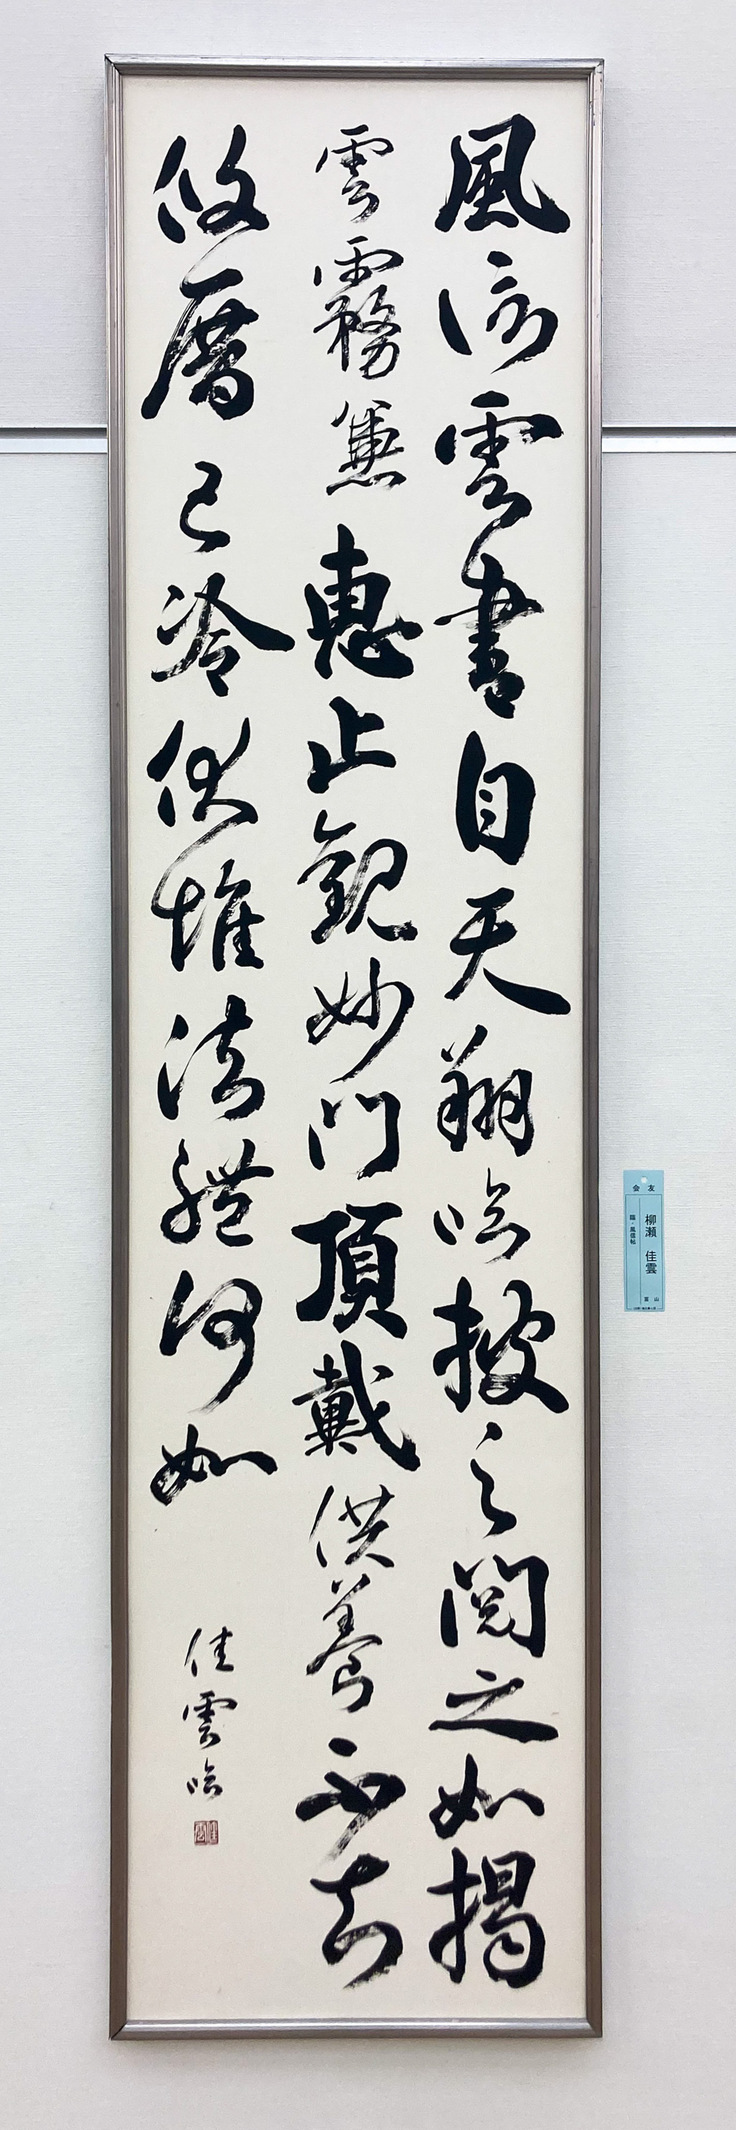 風信雲書自天翔臨披之閲之如揭
雲霧兼恵止觀妙門頂戴供養不知
攸厝已冷伏惟法體何如
佳雲臨
会友
柳瀬 佳雲
臨・風信帖
富山